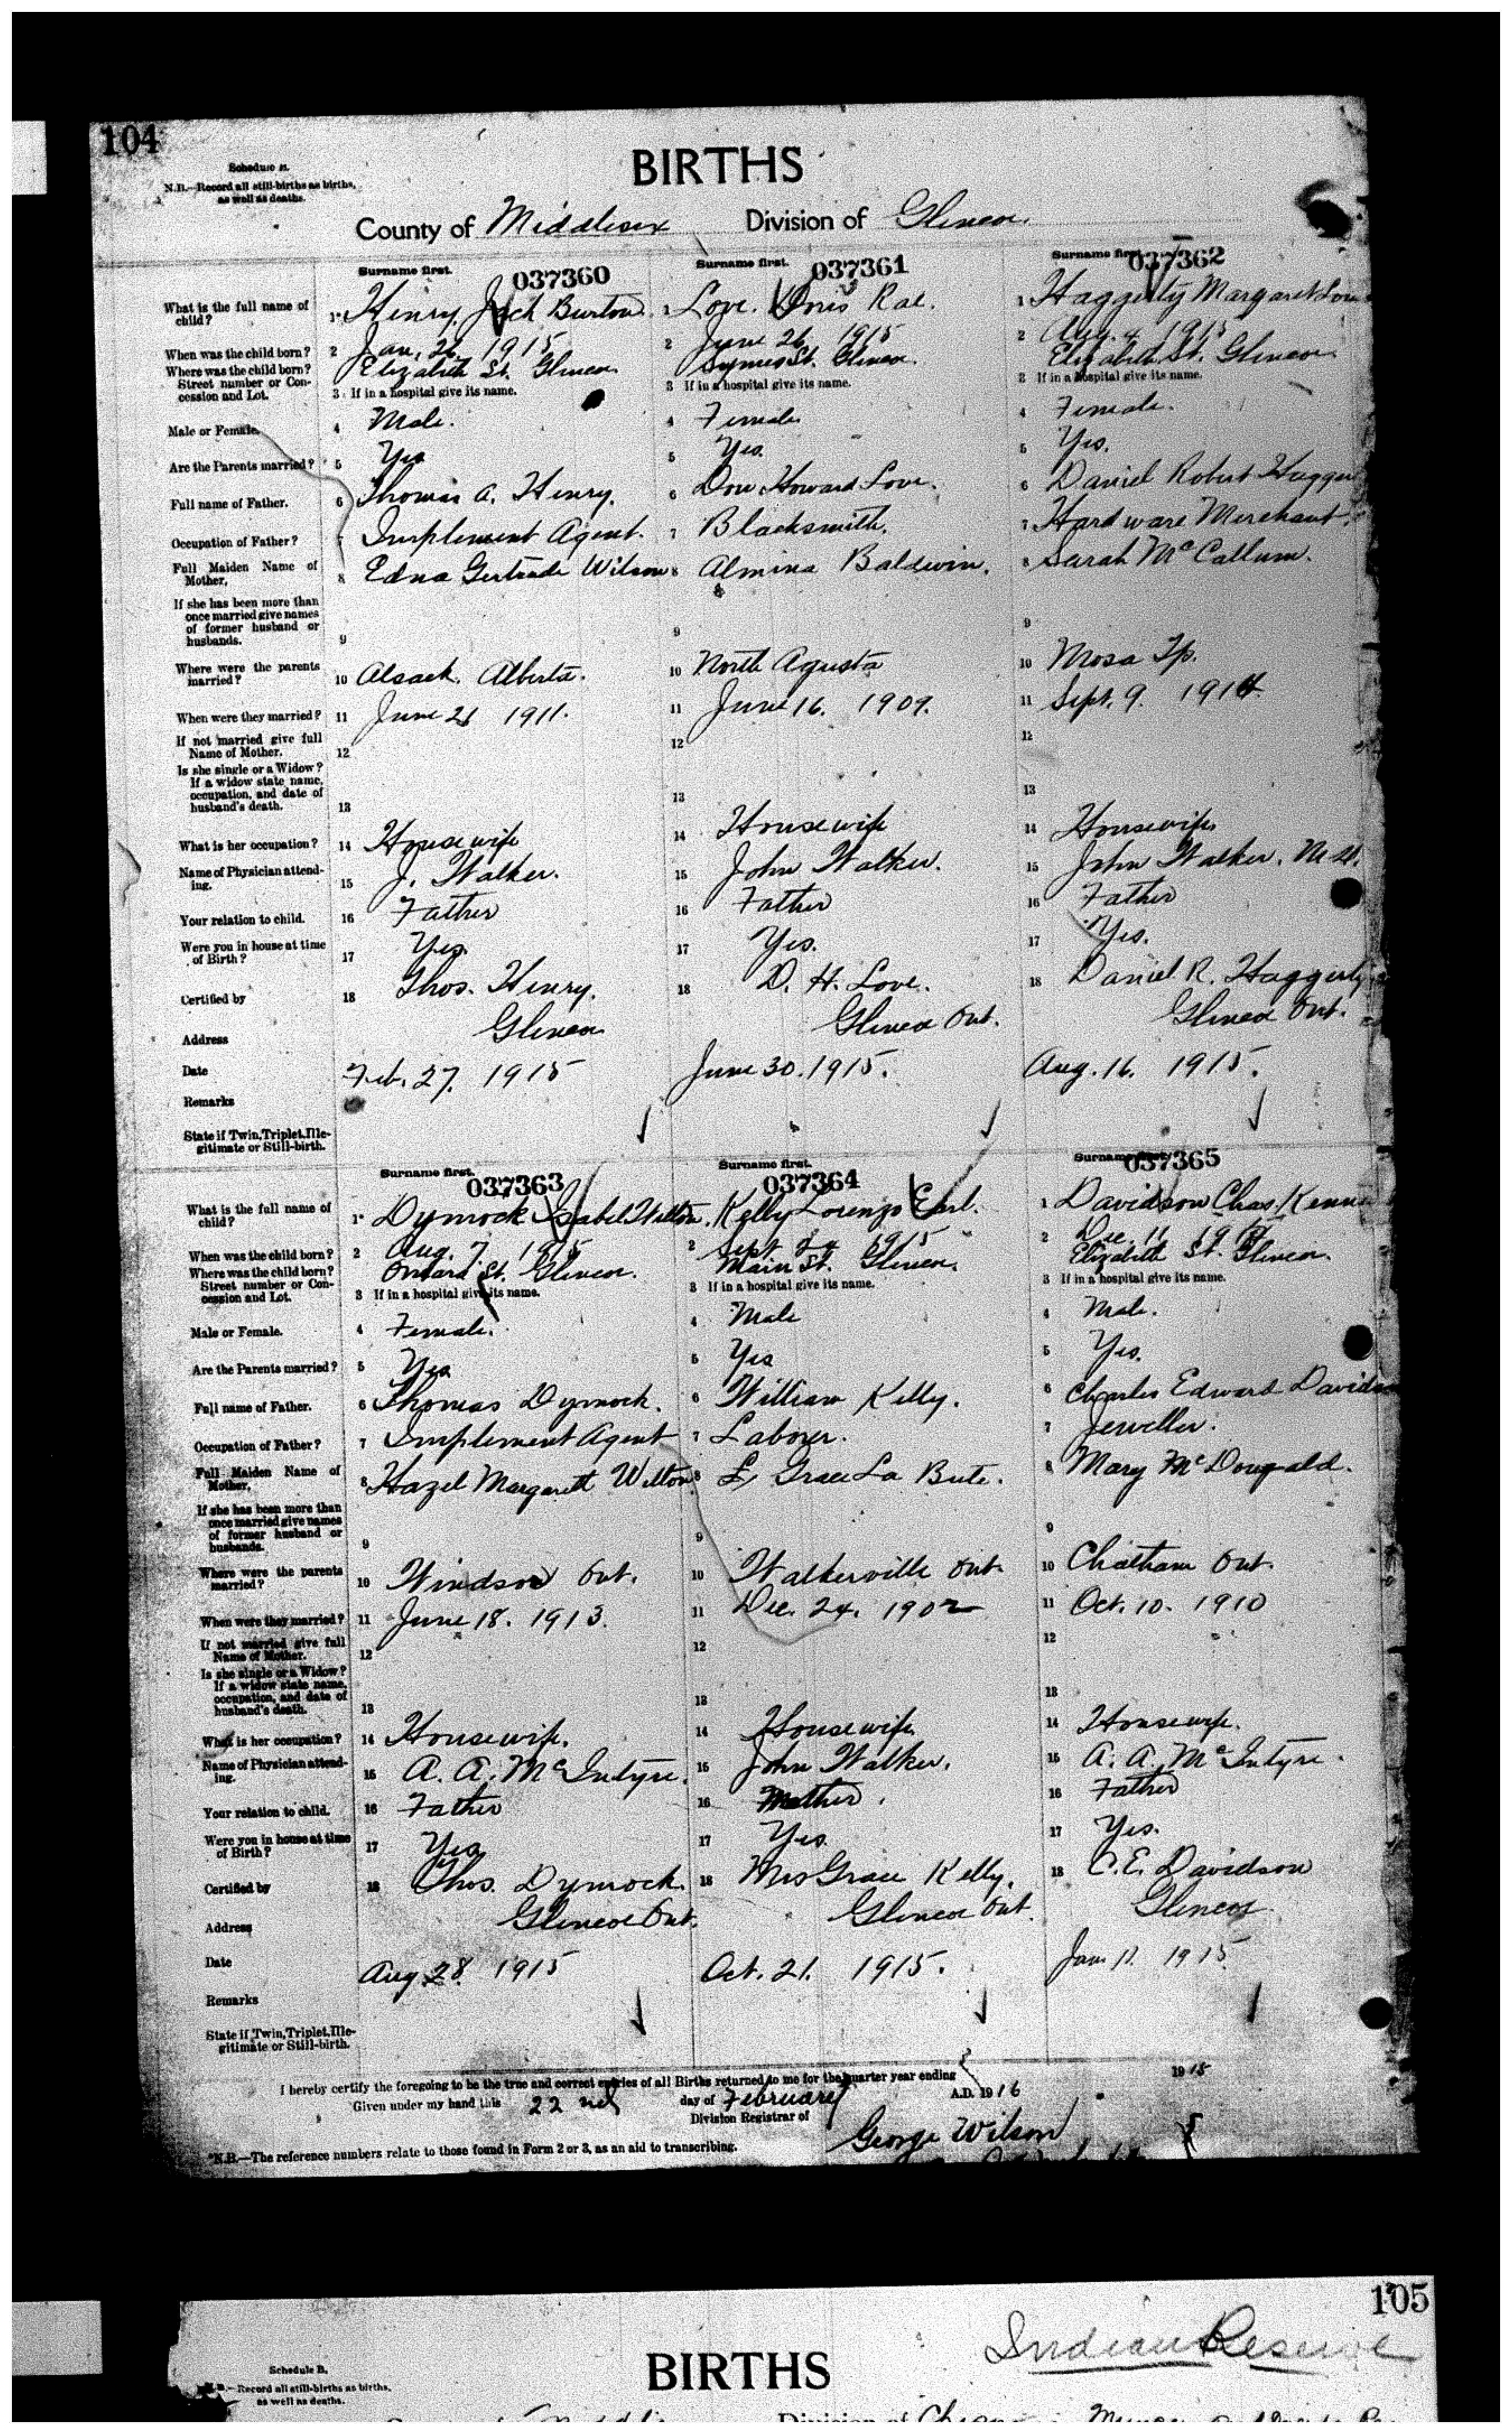 104
Schedule B.
N.B.—Record all still-births as births,
as well as deaths.
BIRTHS
County of Middlesex Division of Glencoe
Surname first. 037360 Surname first. 037361 Surname first. 037362
What is the full name of child? 1 Henry, Jack Burton. 1 Love. Doris Rae. 1 Haggerty Margaret
When was the child born? 2 Jan. 26. 1915 2 June 26 1915 2 Aug. 4 1915
Where was the child born? Street number or Concession and Lot. Elizabeth St. Glencoe Symes St. Glencoe. Elizabeth St. Glencoe
3 If in a hospital give its name. 3 If in a hospital give its name. 3 If in a hospital give its name.
Male or Female. 4 Male. 4 Female 4 Female.
Are the Parents married? 5 Yes 5 Yes. 5 Yes.
Full name of Father. 6 Thomas A. Henry. 6 Don Howard Love. 6 Daniel Robert Hagger
Occupation of Father? 7 Implement Agent. 7 Blacksmith. 7 Hardware Merchant.
Full Maiden Name of Mother. 8 Edna Gertrude Wilson 8 Almina Baldwin. 8 Sarah McCallum.
If she has been more than once married give names of former husband or husbands. 9 9 9
Where were the parents married? 10 Alsack. Alberta. 10 North Agusta 10 Mosa Tp.
When were they married? 11 June 21 1911. 11 June 16. 1909. 11 Sept. 9. 1914
If not married give full Name of Mother. 12 12 12
Is she single or a Widow? If a widow state name, occupation, and date of husband's death. 13 13 13
What is her occupation? 14 Housewife 14 Housewife 14 Housewife
Name of Physician attending. 15 J. Walker. 15 John Walker. 15 John Walker. M.D.
Your relation to child. 16 Father 16 Father 16 Father
Were you in house at time of Birth? 17 Yes. 17 Yes. 17 Yes.
Certified by 18 Thos. Henry. 18 D. H. Love. 18 Daniel R. Haggerty
Address Glencoe Glencoe Ont. Glencoe Ont.
Date Feb. 27. 1915 June 30. 1915. Aug. 16. 1915.
Remarks
State if Twin, Triplet, Illegitimate or Still-birth.
Surname first. 037363 Surname first. 037364 Surname first. 037365
What is the full name of child? 1 Dymock Isabel Wilton. Kelly Lorenzo Earl. 1 Davidson Chas. Kenne
When was the child born? 2 Aug. 7 1915 2 Sept 24 1915 2 Dec. 11
Where was the child born? Street number or Concession and Lot. St. Glencoe. Main St. Glencoe. Elizabeth St. Glencoe.
3 If in a hospital give its name. 3 If in a hospital give its name. 3 If in a hospital give its name.
Male or Female. 4 Female. 4 Male 4 Male.
Are the Parents married? 5 Yes 5 Yes 5 Yes.
Full name of Father. 6 Thomas Dymock. 6 William Kelly. 6 Charles Edward Davids
Occupation of Father? 7 Implement Agent 7 Laborer. 7 Jeweller.
Full Maiden Name of Mother. 8 Hazel Margarett Wilton 8 Grace La Bute. 8 Mary McDougald.
If she has been more than once married give names of former husband or husbands. 9 9 9
Where were the parents married? 10 Windsor Ont. 10 Walkerville Ont. 10 Chatham Ont.
When were they married? 11 June 18. 1913. 11 Dec. 24. 1902 11 Oct. 10. 1910
If not married give full Name of Mother. 12 12 12
Is she single or a Widow? If a widow state name, occupation, and date of husband's death. 13 13 13
What is her occupation? 14 Housewife. 14 Housewife 14 Housewife.
Name of Physician attending. 15 A. A. McIntyre. 15 John Walker. 15 A. A. McIntyre.
Your relation to child. 16 Father 16 Mother. 16 Father
Were you in house at time of Birth? 17 Yes 17 Yes 17 Yes.
Certified by 18 Thos. Dymock. 18 Mrs Grace Kelly. 18 C. E. Davidson
Address Glencoe Ont. Glencoe Ont. Glencoe
Date Aug. 28. 1915 Oct. 21. 1915. Jan. 11. 1915
Remarks
State if Twin, Triplet, Illegitimate or Still-birth.
I hereby certify the foregoing to be the true and correct entries of all Births returned to me for the quarter year ending 1915
Given under my hand this 22nd day of February A.D. 1916
Division Registrar of George Wilson
*N.B.—The reference numbers relate to those found in Form 2 or 3, as an aid to transcribing.
105
Indian Reserve
Schedule B.
N.B.—Record all still-births as births,
as well as deaths.
BIRTHS
Division of